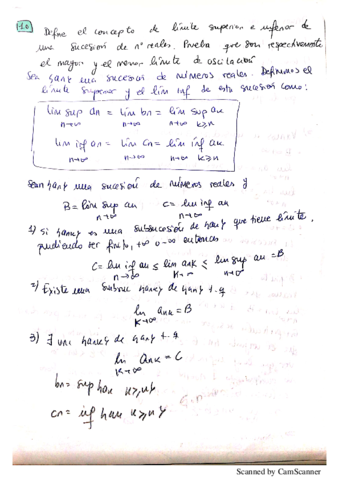 1.0 Define el concepto de límite superior e inferior de
una sucesión de nº reales. Prueba que son respectivamente
el mayor y el menor límite de oscilación
Sea {an} una sucesión de números reales. Definimos el
límite superior y el lím inf de esta sucesión como:
lím sup an = lím bn = lím sup ak
n→∞ n→∞ n→∞ k≥n
lím inf an = lím cn = lím inf ak
n→∞ n→∞ n→∞ k≥n
Sean {an} una sucesión de números reales y
B = lím sup an C = lím inf an
n→∞ n→∞
1) Si {ank} es una subsucesión de {an} que tiene límite,
pudiendo ser finito, +∞ o -∞ entonces
C = lím inf an ≤ lím ank ≤ lím sup an = B
n→∞ k→∞ n→∞
2) Existe una subsuc {ank} de {an} t.q
lím ank = B
k→∞
3) ∃ una {ank} de {an} t.q
lím ank = C
k→∞
bn = sup {ak k≥n}
cn = inf {ak k≥n}
Scanned by CamScanner